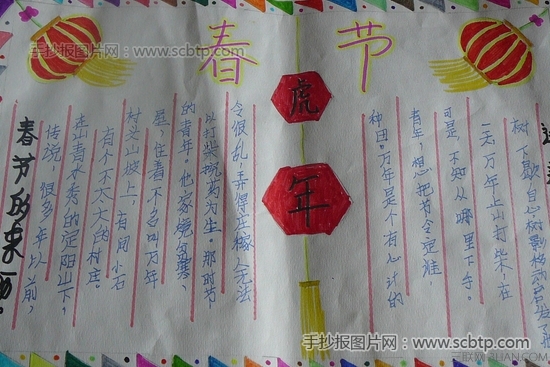 手抄报图片网 www.scbtp.com
春节
春节的来历
传说，很多年以前，
在山青水秀的定阳山下，
有个不太大的村庄。
村头山坡上，有间小石
屋，住着个名叫万年
的青年。他家境贫寒，
以打柴挖药为生。那时节
令很乱，弄得庄稼人无法
虎
年
种田。万年是个有心计的
青年，想把节令定准，
可是，不知从哪里下手。
一天，万年上山打柴，在
树下歇息，树影移动启发了他
手抄报图片网 www.scbtp.com